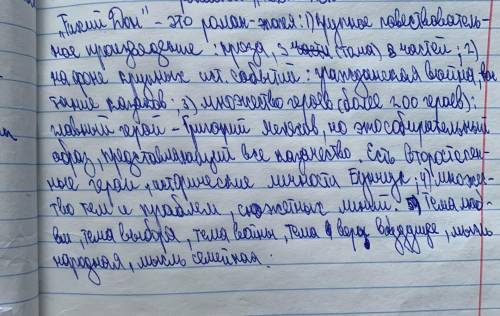 "Тихий Дон" - это роман-эпопея: 1) крупное повествователь-
ное произведение: проза, 4 тома, 8 частей; 2)
на фоне крупных ист. событий: гражданская война, вос
тание казаков; 3) множество героев (более 200 героев);
главный герой - Григорий Мелехов, но это собирательный
образ, представляющий все казачество. Есть второстепен-
ные герои, исторические личности Бунчук; 4) множес-
тво тем и проблем, сюжетных линий. Тема люб-
ви, тема выбора, тема войны, тема веры в будущее, мысль
народная, мысль семейная.